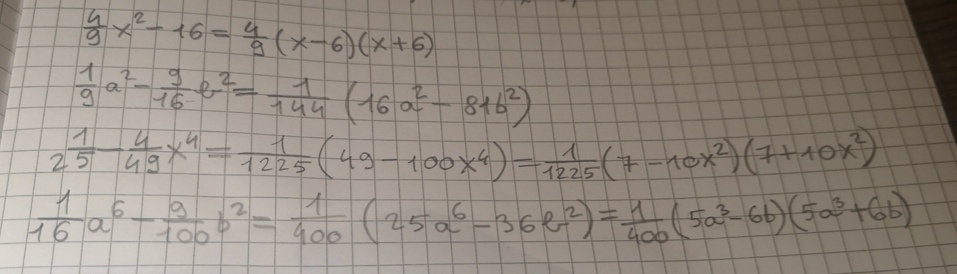 4/9 x² - 16 = 4/9 (x-6)(x+6)
1/9 a² - 9/16 b² = 1/144 (16a² - 81b²)
1/25 - 4/49 x⁴ = 1/1225 (49 - 100x⁴) = 1/1225 (7 - 10x²)(7 + 10x²)
1/16 a⁶ - 9/100 b² = 1/400 (25a⁶ - 36b²) = 1/400 (5a³ - 6b)(5a³ + 6b)